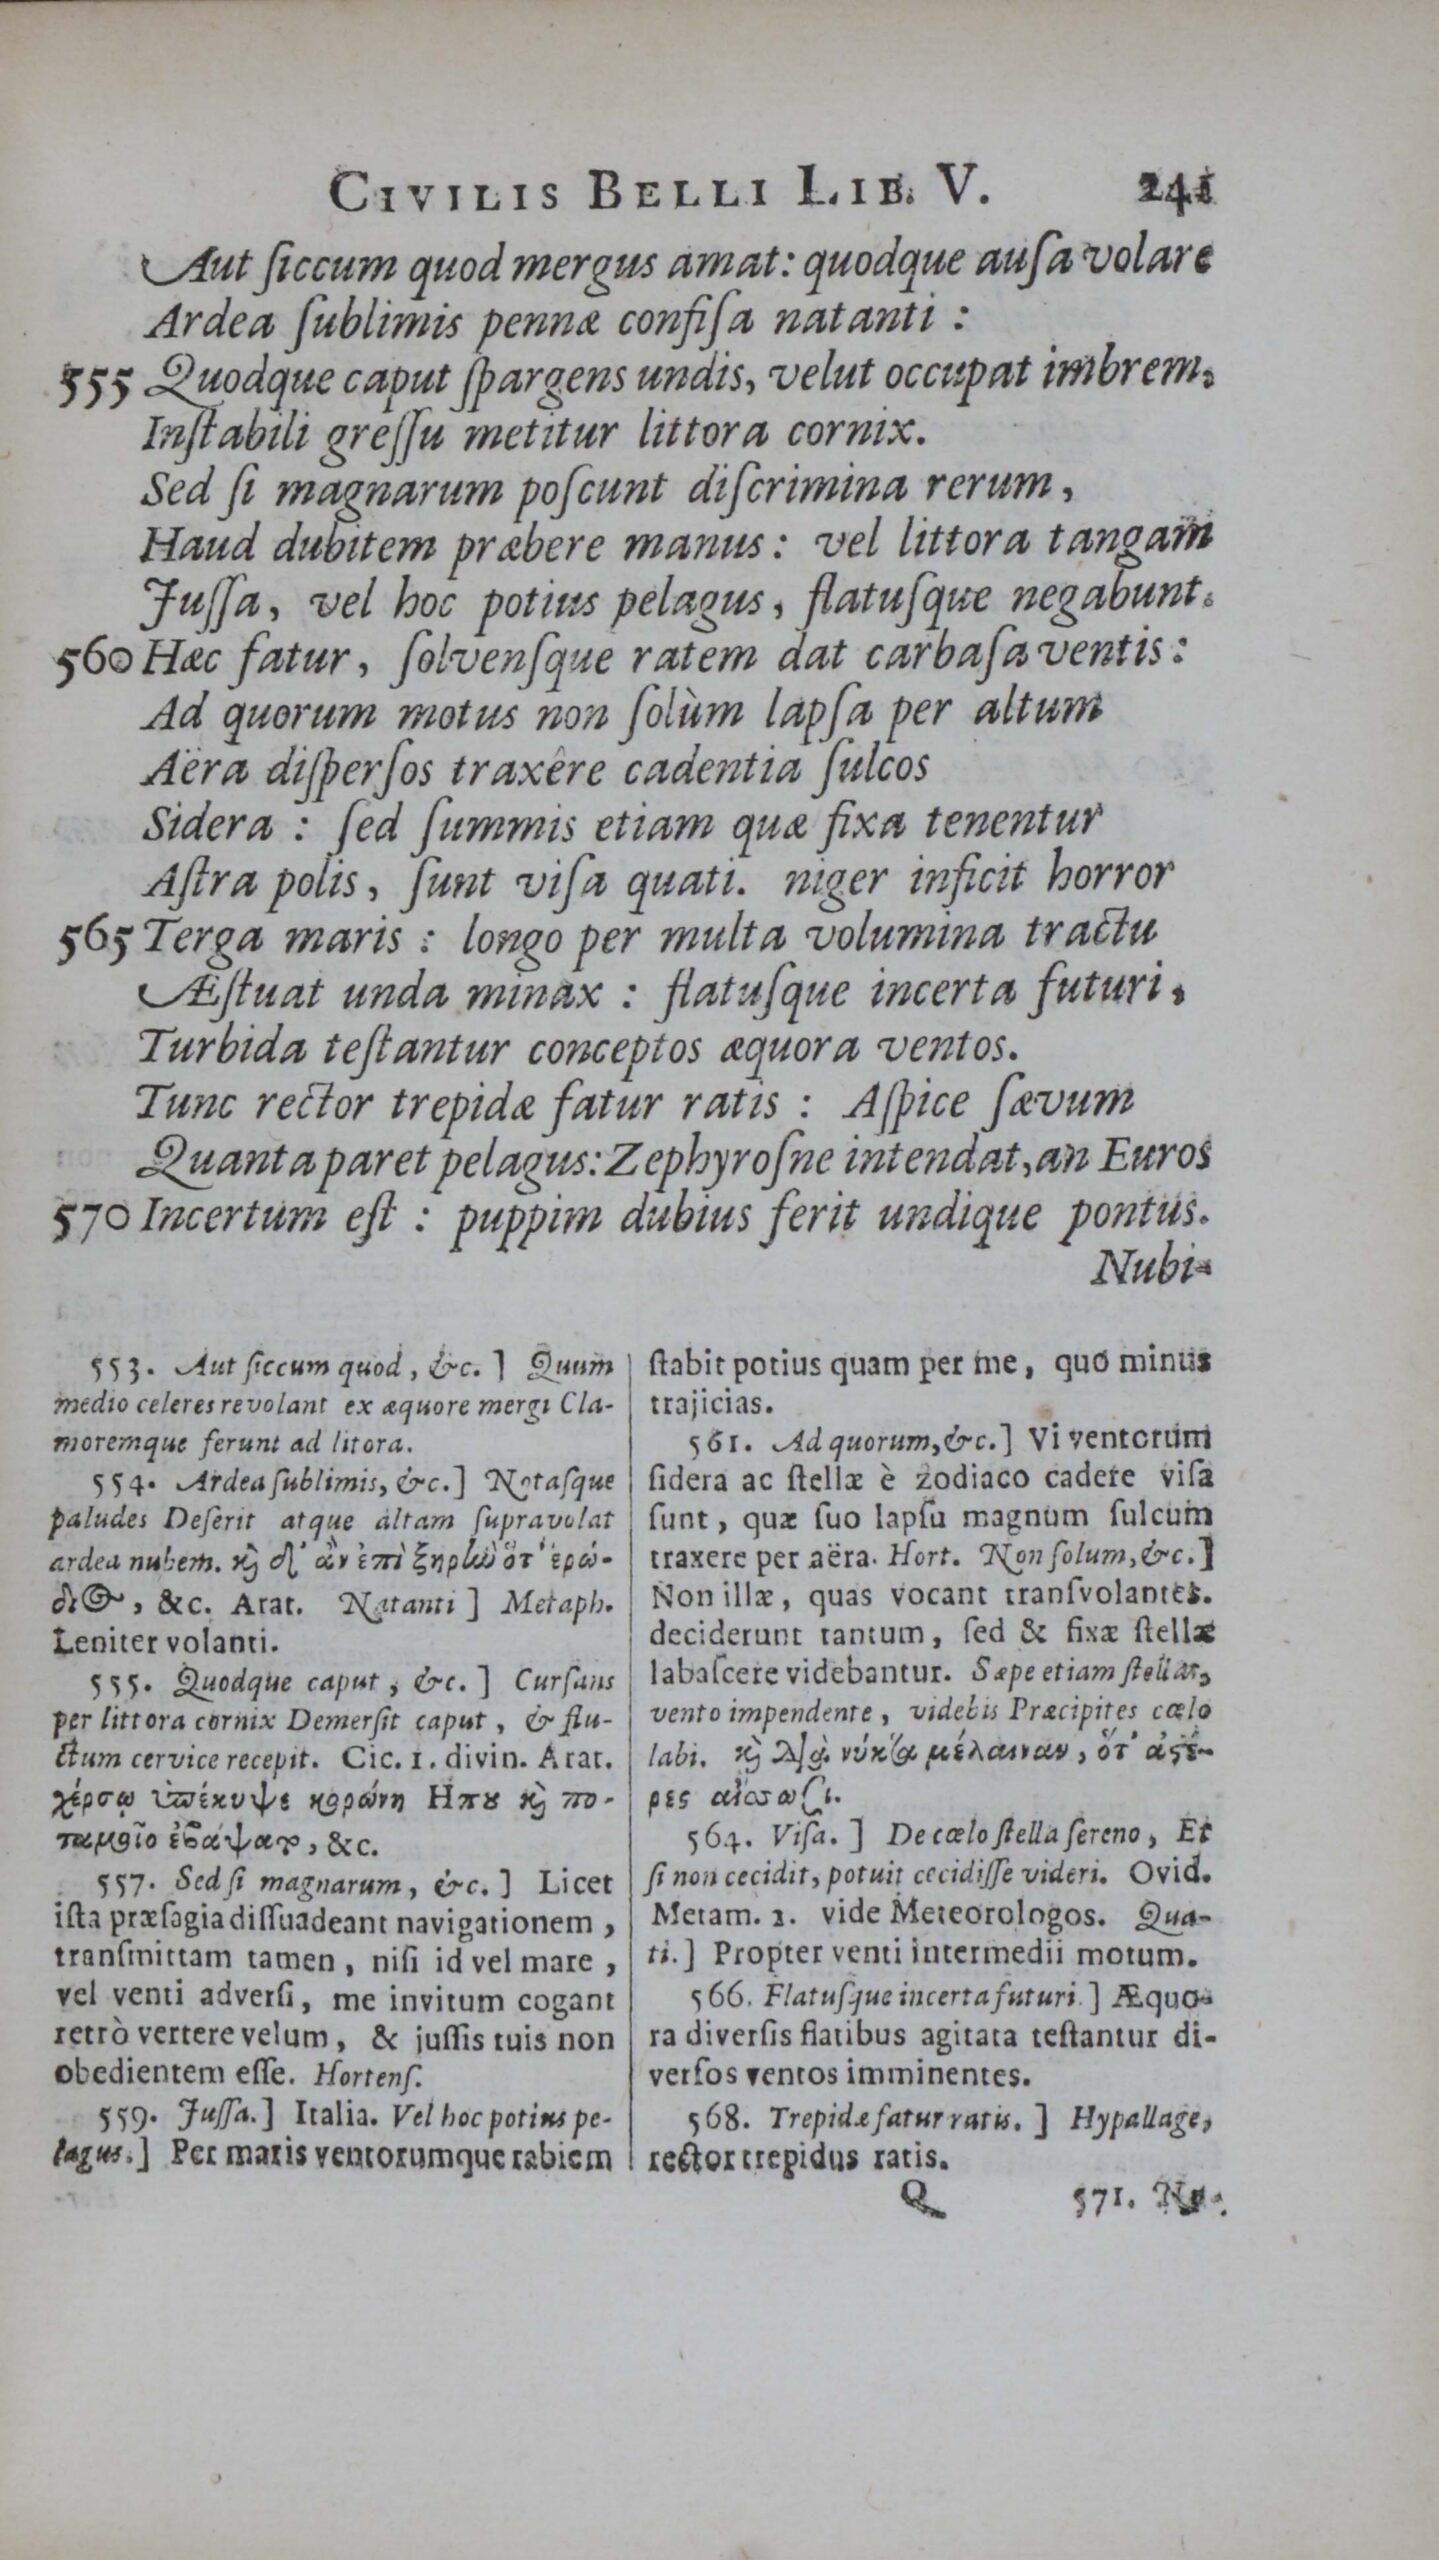 CIVILIS BELLI LIB. V. 241
Aut ſiccum quod mergus amat: quodque auſa volare
Ardea ſublimis pennæ confiſa natanti :
555 Quodque caput ſpargens undis, velut occupat imbrem,
Inſtabili greſſu metitur littora cornix.
Sed ſi magnarum poſcunt diſcrimina rerum,
Haud dubitem præbere manus: vel littora tangam
Juſſa, vel hoc potius pelagus, flatuſque negabunt.
560 Hæc fatur, ſolvenſque ratem dat carbaſa ventis:
Ad quorum motus non ſolùm lapſa per altum
Aëra diſperſos traxêre cadentia ſulcos
Sidera : ſed ſummis etiam quæ fixa tenentur
Aſtra polis, ſunt viſa quati. niger inficit horror
565 Terga maris : longo per multa volumina tractu
Æſtuat unda minax : flatuſque incerta futuri,
Turbida teſtantur conceptos æquora ventos.
Tunc rector trepidæ fatur ratis : Aſpice ſævum
Quanta paret pelagus: Zephyroſne intendat, an Euros
570 Incertum eſt : puppim dubius ferit undique pontus.
Nubi-
553. Aut ſiccum quod, &c. ] Quum
medio celeres revolant ex æquore mergi Cla-
moremque ferunt ad litora.
554. Ardea ſublimis, &c. ] Notaſque
paludes Deſerit atque altam ſupravolat
ardea nubem. ϗ δ' ἂν ἐπὶ ξηρὴν ὅτ' ἐρω-
διὸς, &c. Arat. Natanti ] Metaph.
Leniter volanti.
555. Quodque caput, &c. ] Curſans
per littora cornix Demerſit caput, & flu-
ctum cervice recepit. Cic. 1. divin. Arat.
χέρσῳ ὑπέκυψε κορώνη Ηπου ϗ πο-
ταμοῖο ἐβάψατο, &c.
557. Sed ſi magnarum, &c. ] Licet
iſta præſagia diſſuadeant navigationem,
tranſmittam tamen, niſi id vel mare,
vel venti adverſi, me invitum cogant
retrò vertere velum, & juſſis tuis non
obedientem eſſe. Hortenſ.
559. Juſſa. ] Italia. Vel hoc potius pe-
lagus. ] Per maris ventorumque rabiem
ſtabit potius quam per me, quo minus
trajicias.
561. Ad quorum, &c. ] Vi ventorum
ſidera ac ſtellæ è zodiaco cadere viſa
ſunt, quæ ſuo lapſu magnum ſulcum
traxere per aëra. Hort. Non ſolum, &c. ]
Non illæ, quas vocant tranſvolantes.
deciderunt tantum, ſed & fixæ ſtellæ
labaſcere videbantur. Sæpe etiam ſtellas,
vento impendente, videbis Præcipites cœlo
labi. ϗ διὰ νύκτα μέλαιναν, ὅτ' ἀστέ-
ρες αἴσσωσι.
564. Viſa. ] De cœlo ſtella ſereno, Et
ſi non cecidit, potuit cecidiſſe videri. Ovid.
Metam. 2. vide Meteorologos. Qua-
ti. ] Propter venti intermedii motum.
566. Flatuſque incerta futuri. ] Æquo-
ra diverſis flatibus agitata teſtantur di-
verſos ventos imminentes.
568. Trepidæ fatur ratis. ] Hypallage,
rector trepidus ratis.
Q 571. Nu-